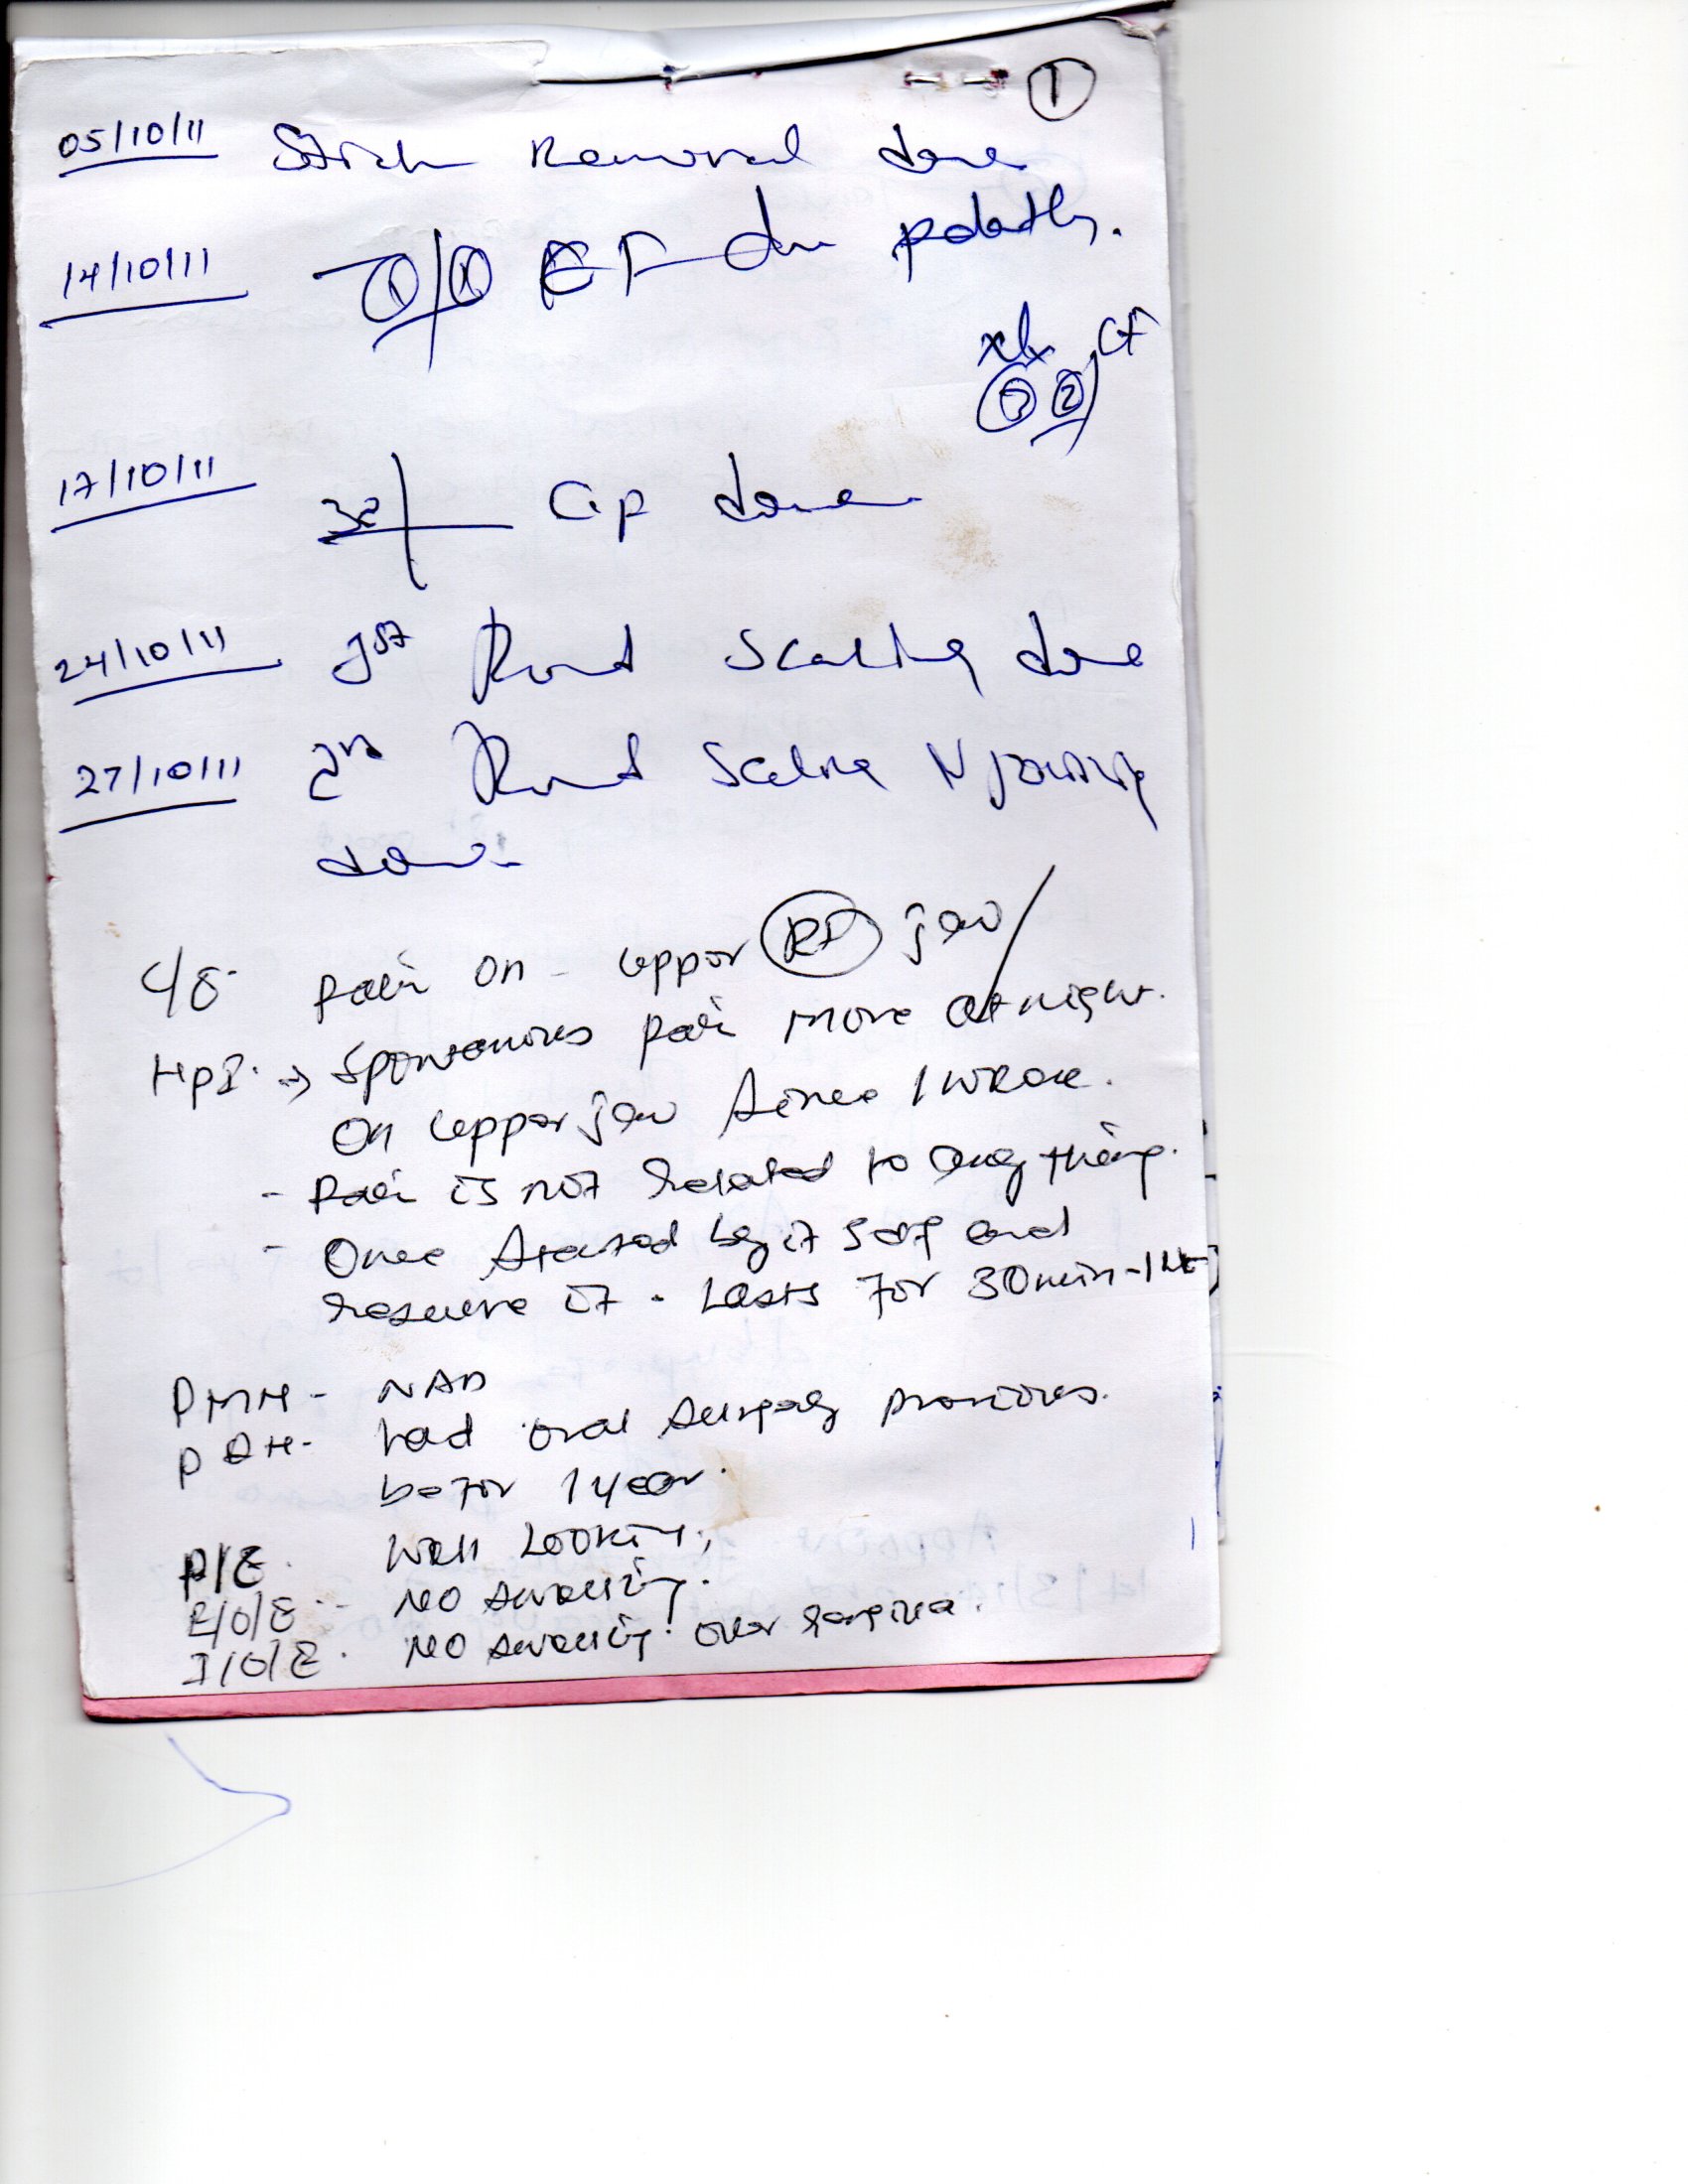 1
05/10/11 Stich Removal done
14/10/11 CF palatally.
CF
2
17/10/11 32 done
24/10/11 1st Round Scaling done
27/10/11 2nd Round Scaling N
done.
C/O pain on - upper RT jaw
HPI. → Spontanious pain more at night.
On upper jaw since 1 week.
- Pain is not related to any thing.
- Once started by it self and
it. Lasts for 30min-1Hr
PMH - NAD
PDH - had oral surgery
befor 1 year.
P/E. Well Looking,
E/O/E - No swelling.
I/O/E. No swelling over